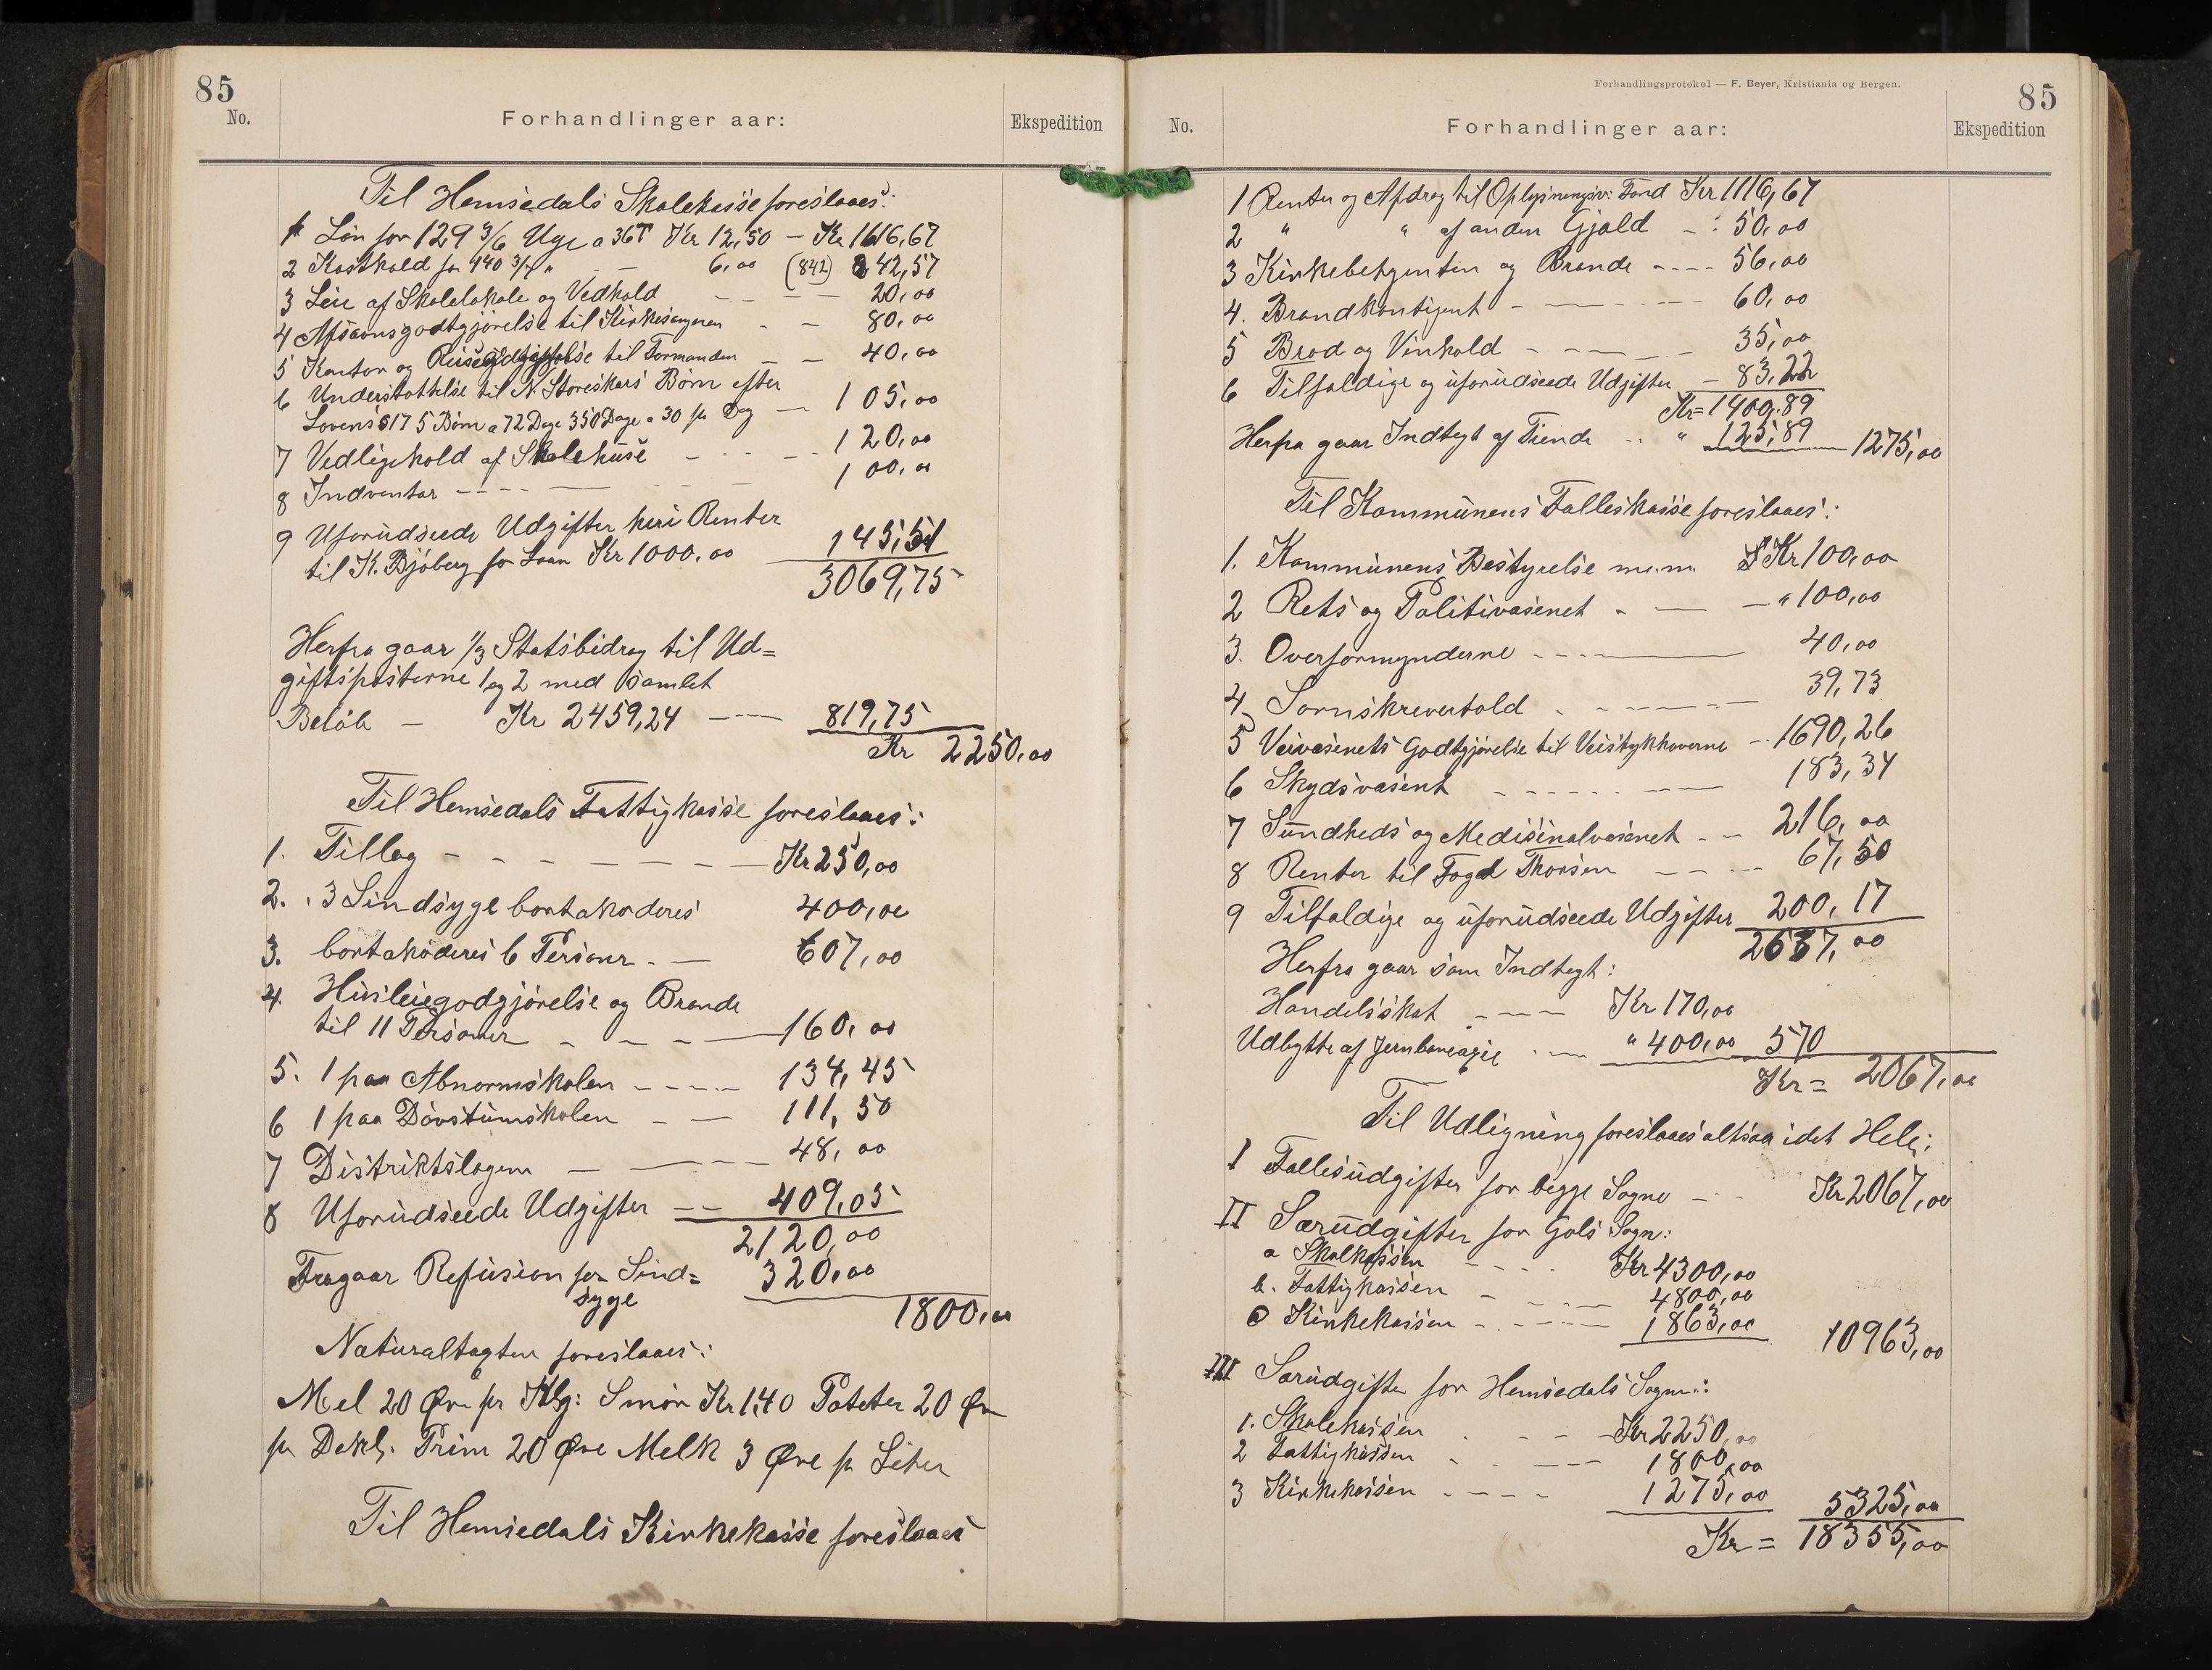 85
No.
Forhandlinger aar:
Ekspedition
Til Hemsedals Skolekasse foreslaaes:
1 Løn for 129 3/6 Uge a 36T Kr 12,50 — Kr 1616,67
2 Kosthold for 140 3/7 " — 6,00 (842) 842,57
3 Leie af Skolelokale og Vedhold — — — 20,00
4 Afsavnsgodtgjørelse til Kirkesangeren - — 80,00
5 Kontor og Reisegodtgjørelse til Formanden — — 40,00
6 Understøttelse til N. Storeskars Børn efter
Lovens § 17 5 Børn a 72 Dage 350 Dage a 30 pr Dag — 105,00
7 Vedligehold af Skolehuse - - - - 120,00
8 Indventar - - - — 100,00
9 Uforudseede Udgifter heri Renter
til K. Bjøberg for Laan Kr 1000,00 145,51
3069,75
Herfra gaar 1/3 Statsbidrag til Ud=
giftsposterne 1 og 2 med samlet
Beløb — Kr 2459,24 --- 819,75
Kr 2250,00
Til Hemsedals Fattigkasse foreslaaes:
1. Tillæg - - - - - — Kr 250,00
2. 3 Sindsyge bortakorderes 400,00
3. bortakorderes 6 Personer - — 607,00
4. Husleiegodgjørelse og Brænde
til 11 Personer - — - — 160,00
5. 1 paa Abnormskolen - - - - 134,45
6 1 paa Døvstumskolen - — 111,50
7 Distriktslægen — — - - 48,00
8 Uforudseede Udgifter — - 409,05
2120,00
Fragaar Refusion for Sind=
syge
320,00
1800,00
Naturaltagten foreslaaes:
Mel 20 Øre pr Klg: Smør Kr 1,40 Poteter 20 Øre
pr Dekl. Prim 20 Øre Melk 3 Øre pr Liter
Til Hemsedals Kirkekasse foreslaaes
Forhandlingsprotokol — F. Beyer, Kristiania og Bergen.
85
No.
Forhandlinger aar:
Ekspedition
1 Renter og Afdrag til Oplysningsv: Fond Kr 1116,67
2 " " af anden Gjæld - : 50,00
3 Kirkebetjenten og Brænde - - - - 56,00
4. Brandkontigent - — - - - 60,00
5 Brød og Vinhold - - — - - 35,00
6 Tilfældige og uforudseede Udgifter — 83,22
Kr= 1400,89
Herfra gaar Indtægt af Tiende - - " 125,89 — 1275,00
Til Kommunens Fælleskasse foreslaaes:
1. Kommunens Bestyrelse m.m. Kr 100,00
2 Rets og Politivæsenet - — — " 100,00
3. Overformynderne - - - — 40,00
4 Lornskrevertold - - - - — 39,73
5 Veivæsenets Godtgjørelse til Veistykkeverne - 1690,26
6 Skydsvæsent - - - - - — 183,34
7 Sundheds og Medisinalvæsenet - - 216,00
8 Renter til Foged Thorsen — - - - 67,50
9 Tilfældige og uforudseede Udgifter 200,17
2637,00
Herfra gaar som Indtægt:
Handelsskat - - — Kr 170,00
Udbytte af Jernbaneaksje - — " 400,00 570
Kr= 2067,00
Til Udligning foreslaaes altsaa idet Hele:
I Fællesudgifter for begge Sogne - - Kr 2067,00
II Særudgifter for Gols Sogn:
a Skolekassen - - - - Kr 4300,00
b. Fattigkassen - - - — 4800,00
c Kirkekassen - - - - — 1863,00 10963,00
III Særudgifter for Hemsedals Sogn:
1. Skolekassen - - - Kr 2250,00
2 Fattigkassen - - - — 1800,00
3 Kirkekassen - - - - 1275,00 5325,00
Kr= 18355,00